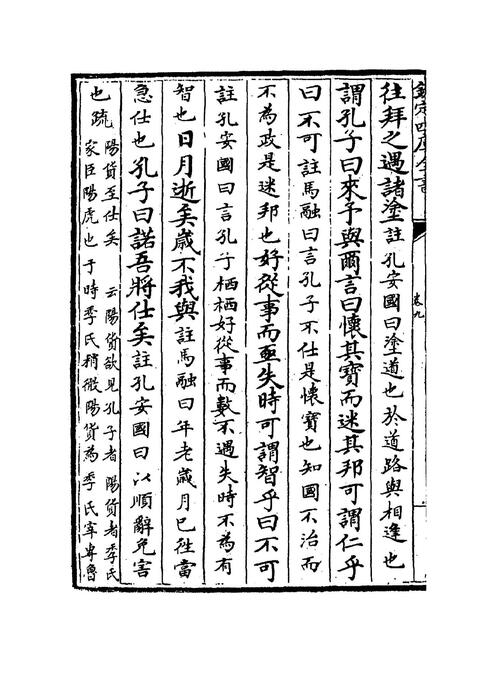 欽定四庫全書
卷九
往拜之遇諸塗註孔安國曰塗道也於道路與相逢也
謂孔子曰來予與爾言曰懷其寶而迷其邦可謂仁乎
曰不可註馬融曰言孔子不仕是懷寶也知國不治而
不為政是迷邦也好從事而亟失時可謂智乎曰不可
註孔安國曰言孔子栖栖好從事而數不遇失時不為有
智也日月逝矣歳不我與註馬融曰年老歳月已徃當
急仕也孔子曰諾吾將仕矣註孔安國曰以順辭免害
也疏陽貨至仕矣　云陽貨欲見孔子者陽貨者季氏
家臣陽虎也于時季氏稍微陽貨為季氏宰専魯